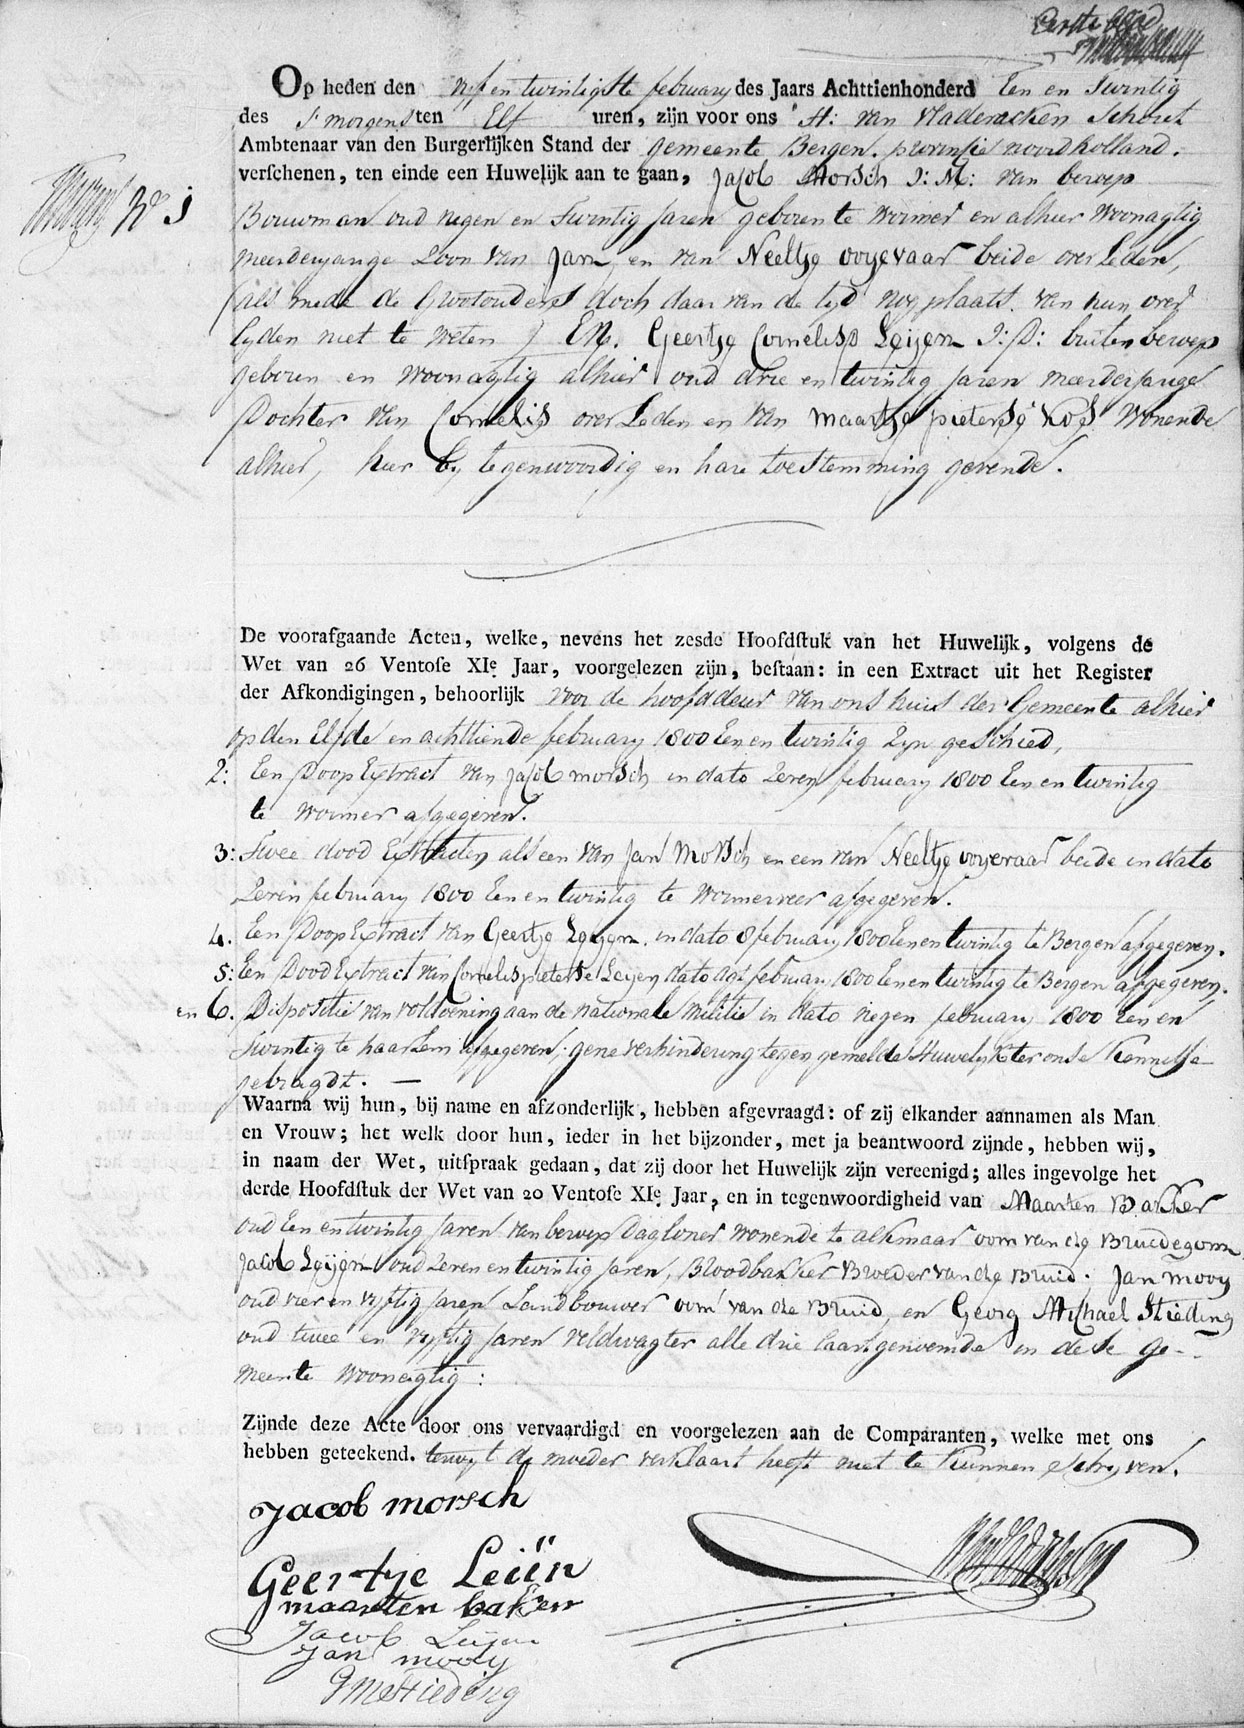 Eerste blad
Op heden den vijf en twintigste february des Jaars Achttienhonderd Een en Twintig
des s'morgens ten Elf uren, zijn voor ons H: van Vladeracken Schout
Ambtenaar van den Burgerlijken Stand der gemeente Bergen. provinsie noordholland.
verschenen, ten einde een Huwelijk aan te gaan, Jacob Morsch J: M: van beroep
No 1
Bouwman oud negen en Twintig Jaren geboren te wormer en alhier woonagtig
meerderjange Zoon van Jan, en van Neeltje ooyevaar beide overleden,
(als mede de Grootouders doch daar van de tyd nog plaats van hun over
lyden niet te weten) En. Geertje Cornelisp Leijen J: D: buiten beroep
geboren en woonagtig alhier oud drie en twintig Jaren meerderjange
Dochter van Cornelis overleden en van maartje pieterse Kos wonende
alhier, hier by tegenwoordig en hare toestemming gevende.
De voorafgaande Acten, welke, nevens het zesde Hoofdstuk van het Huwelijk, volgens de
Wet van 26 Ventose XIe Jaar, voorgelezen zijn, bestaan: in een Extract uit het Register
der Afkondigingen, behoorlijk voor de hoofddeur van ons huis der Gemeente alhier
op den Elfde en achttiende february 1800 Een en twintig Zyn geschied,
2: Een Doop Extract van Jacob morsch in dato Zeven february 1800 Een en twintig
te wormer afgegeven.
3: Twee dood Extracten als een van Jan Morsch en een van Neeltje ooyevaar beide in dato
Zeven february 1800 Een en twintig te wormerveer afgegeven.
4. Een Doop Extract van Geertje Leijen. in dato 8 february 1800 Een en twintig te Bergen afgegeven.
5: Een Dood Extract van Cornelis pieterse Leijen dato agt february 1800 Een en twintig te Bergen afgegeven.
en 6. Dispositie van voldoening aan de nationale Militie in dato negen february 1800 Een en
Twintig te haarlem afgegeven, gene verhindering tegen gemelde Huwelijk ter onse Kennisse
gebragt. —
Waarna wij hun, bij name en afzonderlijk, hebben afgevraagd: of zij elkander aannamen als Man
en Vrouw; het welk door hun, ieder in het bijzonder, met ja beantwoord zijnde, hebben wij,
in naam der Wet, uitspraak gedaan, dat zij door het Huwelijk zijn vereenigd; alles ingevolge het
derde Hoofdstuk der Wet van 20 Ventose XIe Jaar, en in tegenwoordigheid van Maarten Bakker
oud Een en twintig Jaren van beroep Dagloner wonende te alkmaar oom van de Bruidegom
Jacob Leijen oud Zeven en twintig Jaren, Broodbakker Broeder van de Bruid. Jan mooy
oud vier en vyftig Jaren Landbouwer oom van de Bruid, en Georg Michael Stieding
oud twee en vyftig Jaren veldwagter alle drie laastgenoemde in dese ge-
meente woonagtig:
Zijnde deze Acte door ons vervaardigd en voorgelezen aan de Comparanten, welke met ons
hebben geteekend. terwyl de moeder verklaart heeft niet te kunnen schryven.
Jacob morsch
Geertje Leiën
maarten bakker
Jacob Leijen
Jan mooy
GMStieding